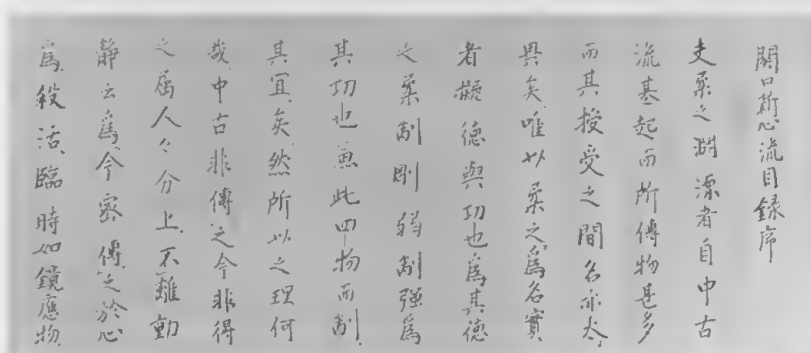 關口新心流目録序
夫柔之淵源者自中古
流基起而所傳物甚多
而其授受之間名亦大
異矣唯以柔之爲名實
者擬德與功也爲其德
之柔制剛弱制强爲
其功也兼此四物而制
其宜矣然所以之理何
哉中古非傳之今非得
之属人々分上不離動
静云爲今密傳之於心
爲殺活臨時如鏡應物